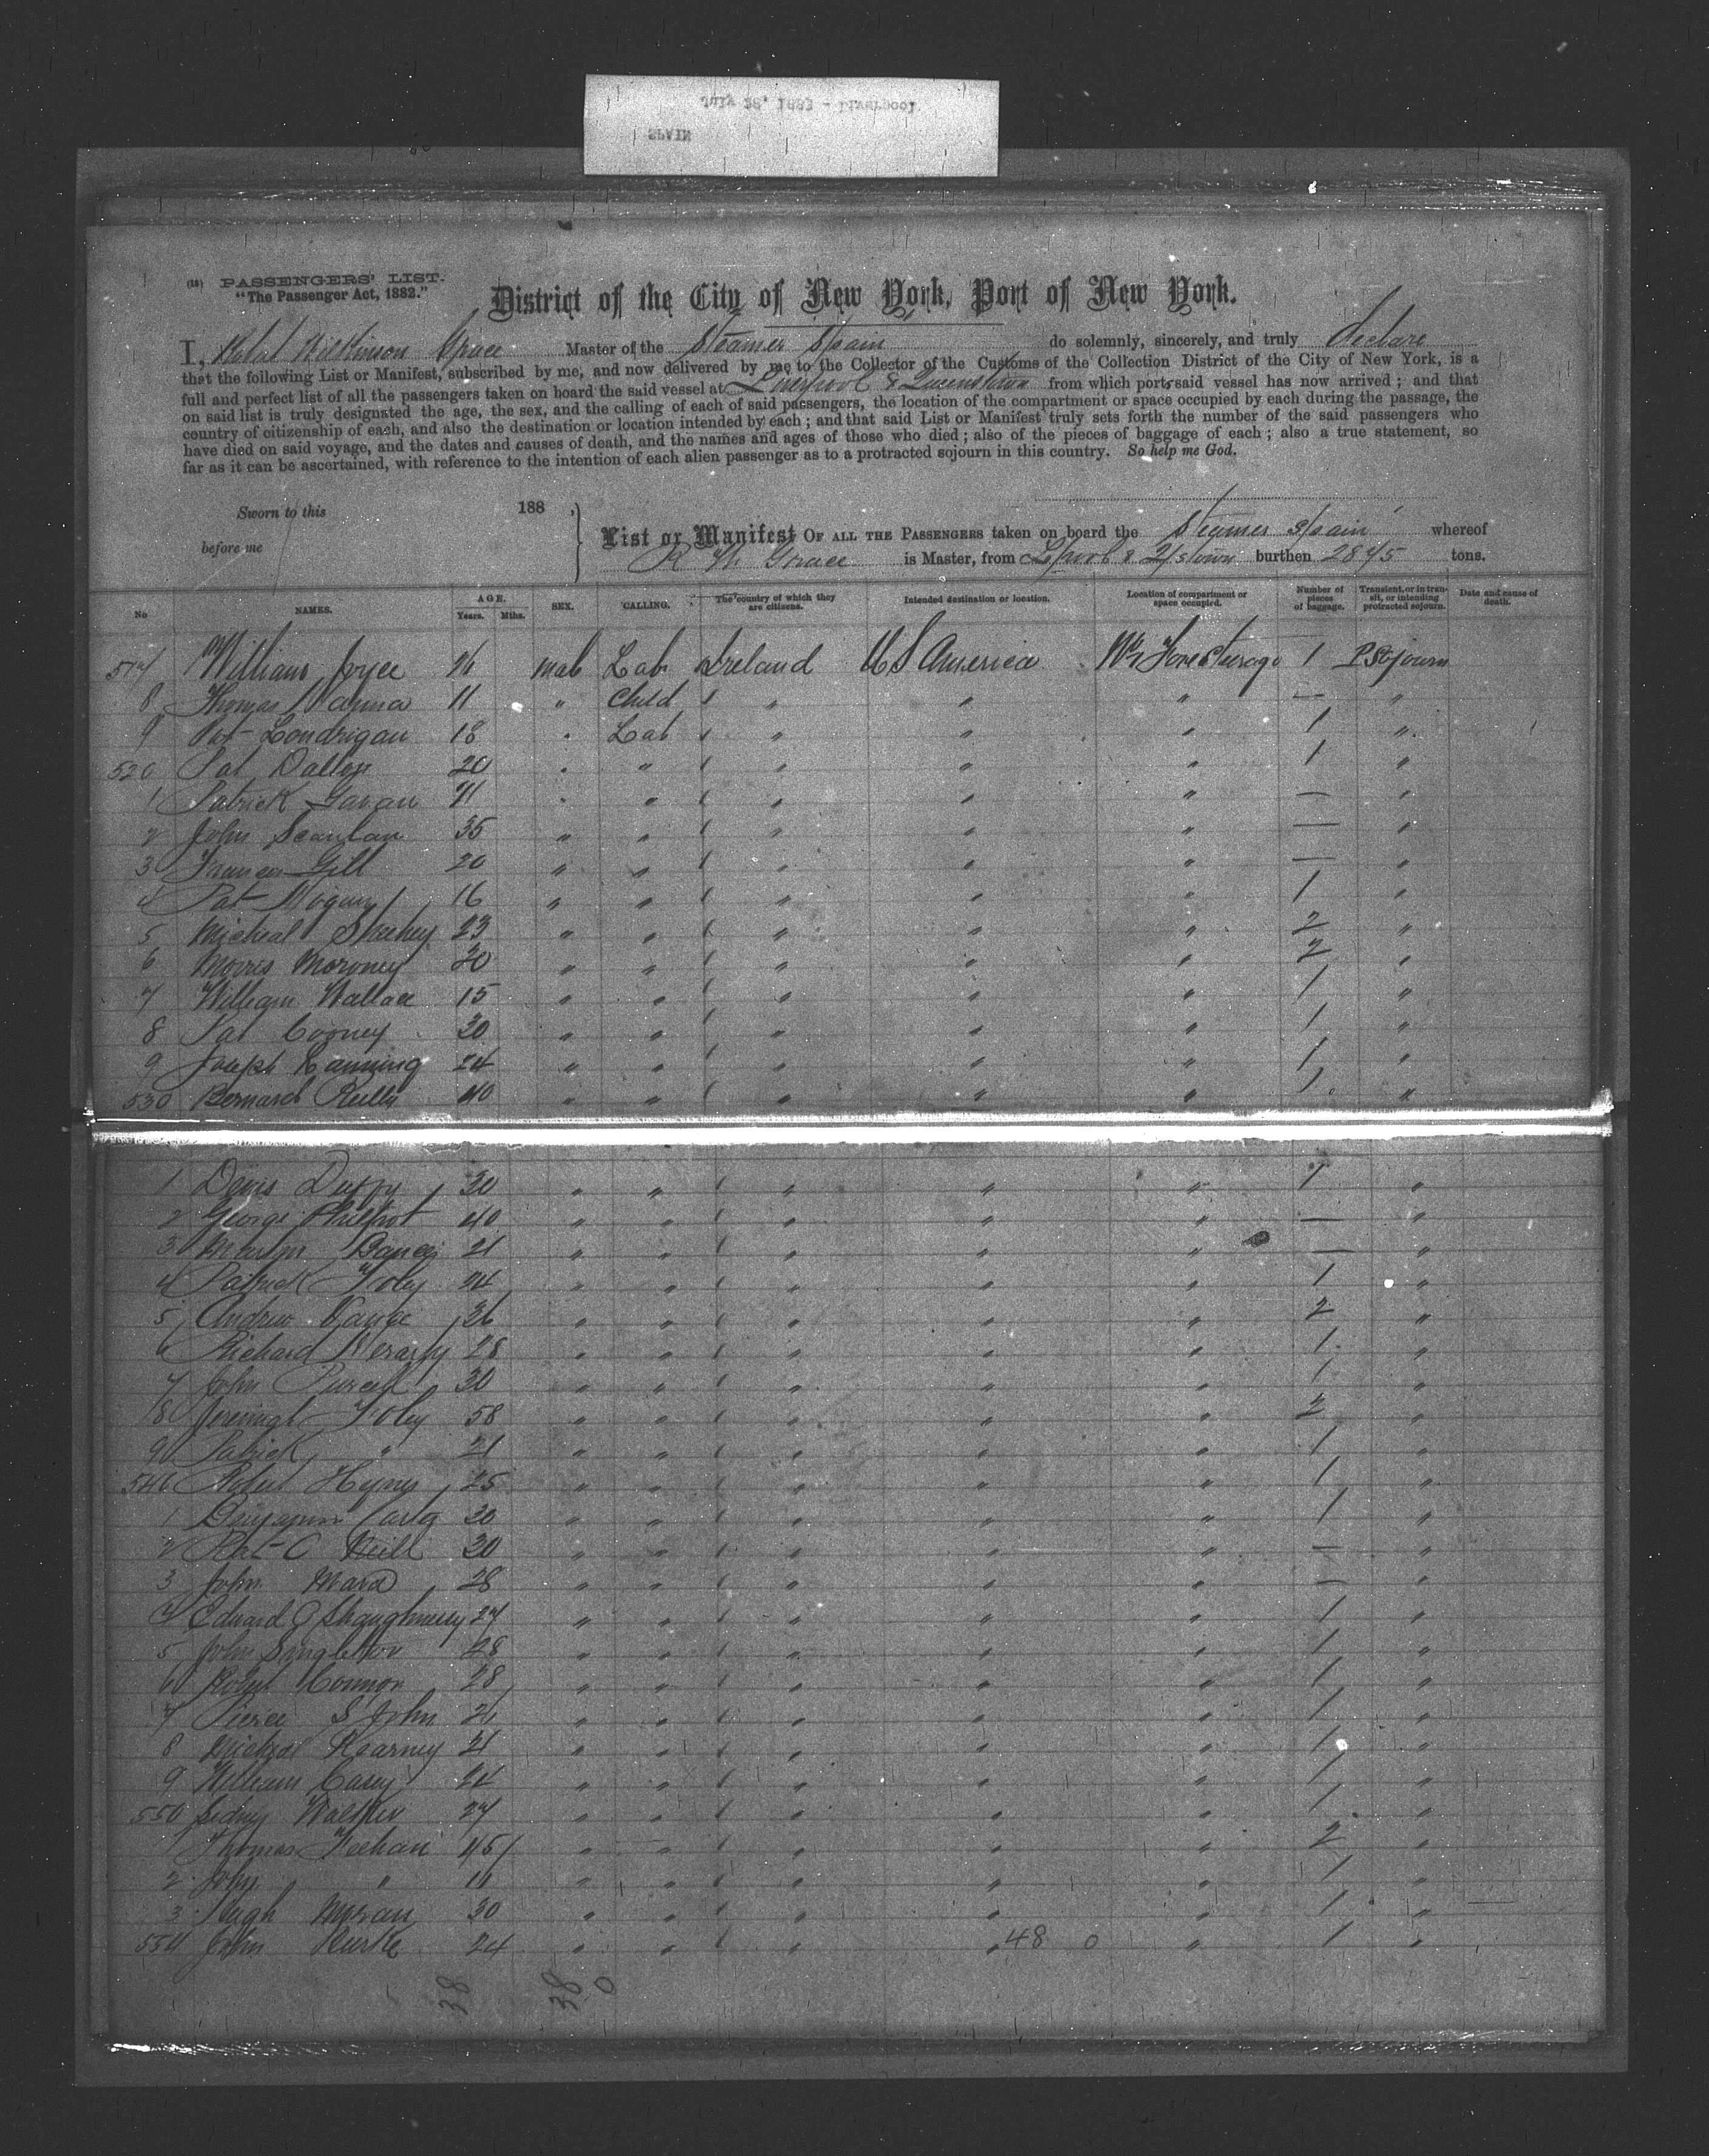 (18) PASSENGERS' LIST.
"The Passenger Act, 1882."
District of the City of New York, Port of New York.
I, Wilkinson Grace Master of the Steamer Spain do solemnly, sincerely, and truly declare
that the following List or Manifest, subscribed by me, and now delivered by me to the Collector of the Customs of the Collection District of the City of New York, is a
full and perfect list of all the passengers taken on board the said vessel at Liverpool & Queenstown from which ports said vessel has now arrived; and that
on said list is truly designated the age, the sex, and the calling of each of said passengers, the location of the compartment or space occupied by each during the passage, the
country of citizenship of each, and also the destination or location intended by each; and that said List or Manifest truly sets forth the number of the said passengers who
have died on said voyage, and the dates and causes of death, and the names and ages of those who died; also of the pieces of baggage of each; also a true statement, so
far as it can be ascertained, with reference to the intention of each alien passenger as to a protracted sojourn in this country. So help me God.
Sworn to this 188 ,
before me
List or Manifest OF ALL THE PASSENGERS taken on board the Steamer Spain whereof
R W Grace is Master, from L'pool & Q'stown burthen 2875 tons.
No NAMES. AGE. Years. Mths. SEX. CALLING. The country of which they are citizens. Intended destination or location. Location of compartment or space occupied. Number of pieces of baggage. Transient, or in transit, or intending protracted sojourn. Date and cause of death.
517 William Joyce 26 male Lab Ireland U S America Fore Steerage 1 P Sojourn
8 Thomas 11 " Child " " " — "
9 Pat Londrigan 18 " Lab " " " 1 "
520 Pat Dalton 20 " " " " " 1 "
1 Patrick Gavan " " " " " — "
2 John Scanlan 35 " " " " " — "
3 Frances Gill 20 " " " " " — "
4 Pat Hogan 16 " " " " " 1 "
5 Micheal Sheehy 23 " " " " " 2 "
6 Morris Moroney 20 " " " " " 2 "
7 William Wallace 15 " " " " " 1 "
8 Pat Cooney 30 " " " " " 1 "
9 Joseph Lanning 24 " " " " " 1 "
530 Bernard Reilly 40 " " " " " 1 "
1 Denis Duffy 30 " " " " " 1 "
2 George Philpot 40 " " " " " — "
3 Martin 21 " " " " " — "
4 Patrick Foley 24 " " " " " 1 "
5 Andrew 36 " " " " " 2 "
6 Richard 28 " " " " " 1 "
7 John Purcell 30 " " " " " 1 "
8 Jeremiah Foley 58 " " " " " 2 "
9 Patrick " 21 " " " " " 1 "
540 Robert Hynes 25 " " " " " 1 "
1 Benjamin 30 " " " " " 1 "
2 Pat O Neill 30 " " " " " — "
3 John Mara 28 " " " " " — "
4 Edward O Shaughnessy 27 " " " " " 1 "
5 John Singleton 28 " " " " " 1 "
6 Robert Connor 28 " " " " " 1 "
7 Pierce St John 26 " " " " " 1 "
8 Michael Kearney 21 " " " " " 1 "
9 William Casey 24 " " " " " 1 "
550 Sidney Walker 27 " " " " " 1 "
1 Thomas Feehan 45 " " " " " 2 "
2 John " " " " " " 1 "
3 Hugh Moran 30 " " " " " 1 "
554 John Burke 24 " " " " 48 0 " 1 "
38 38 0